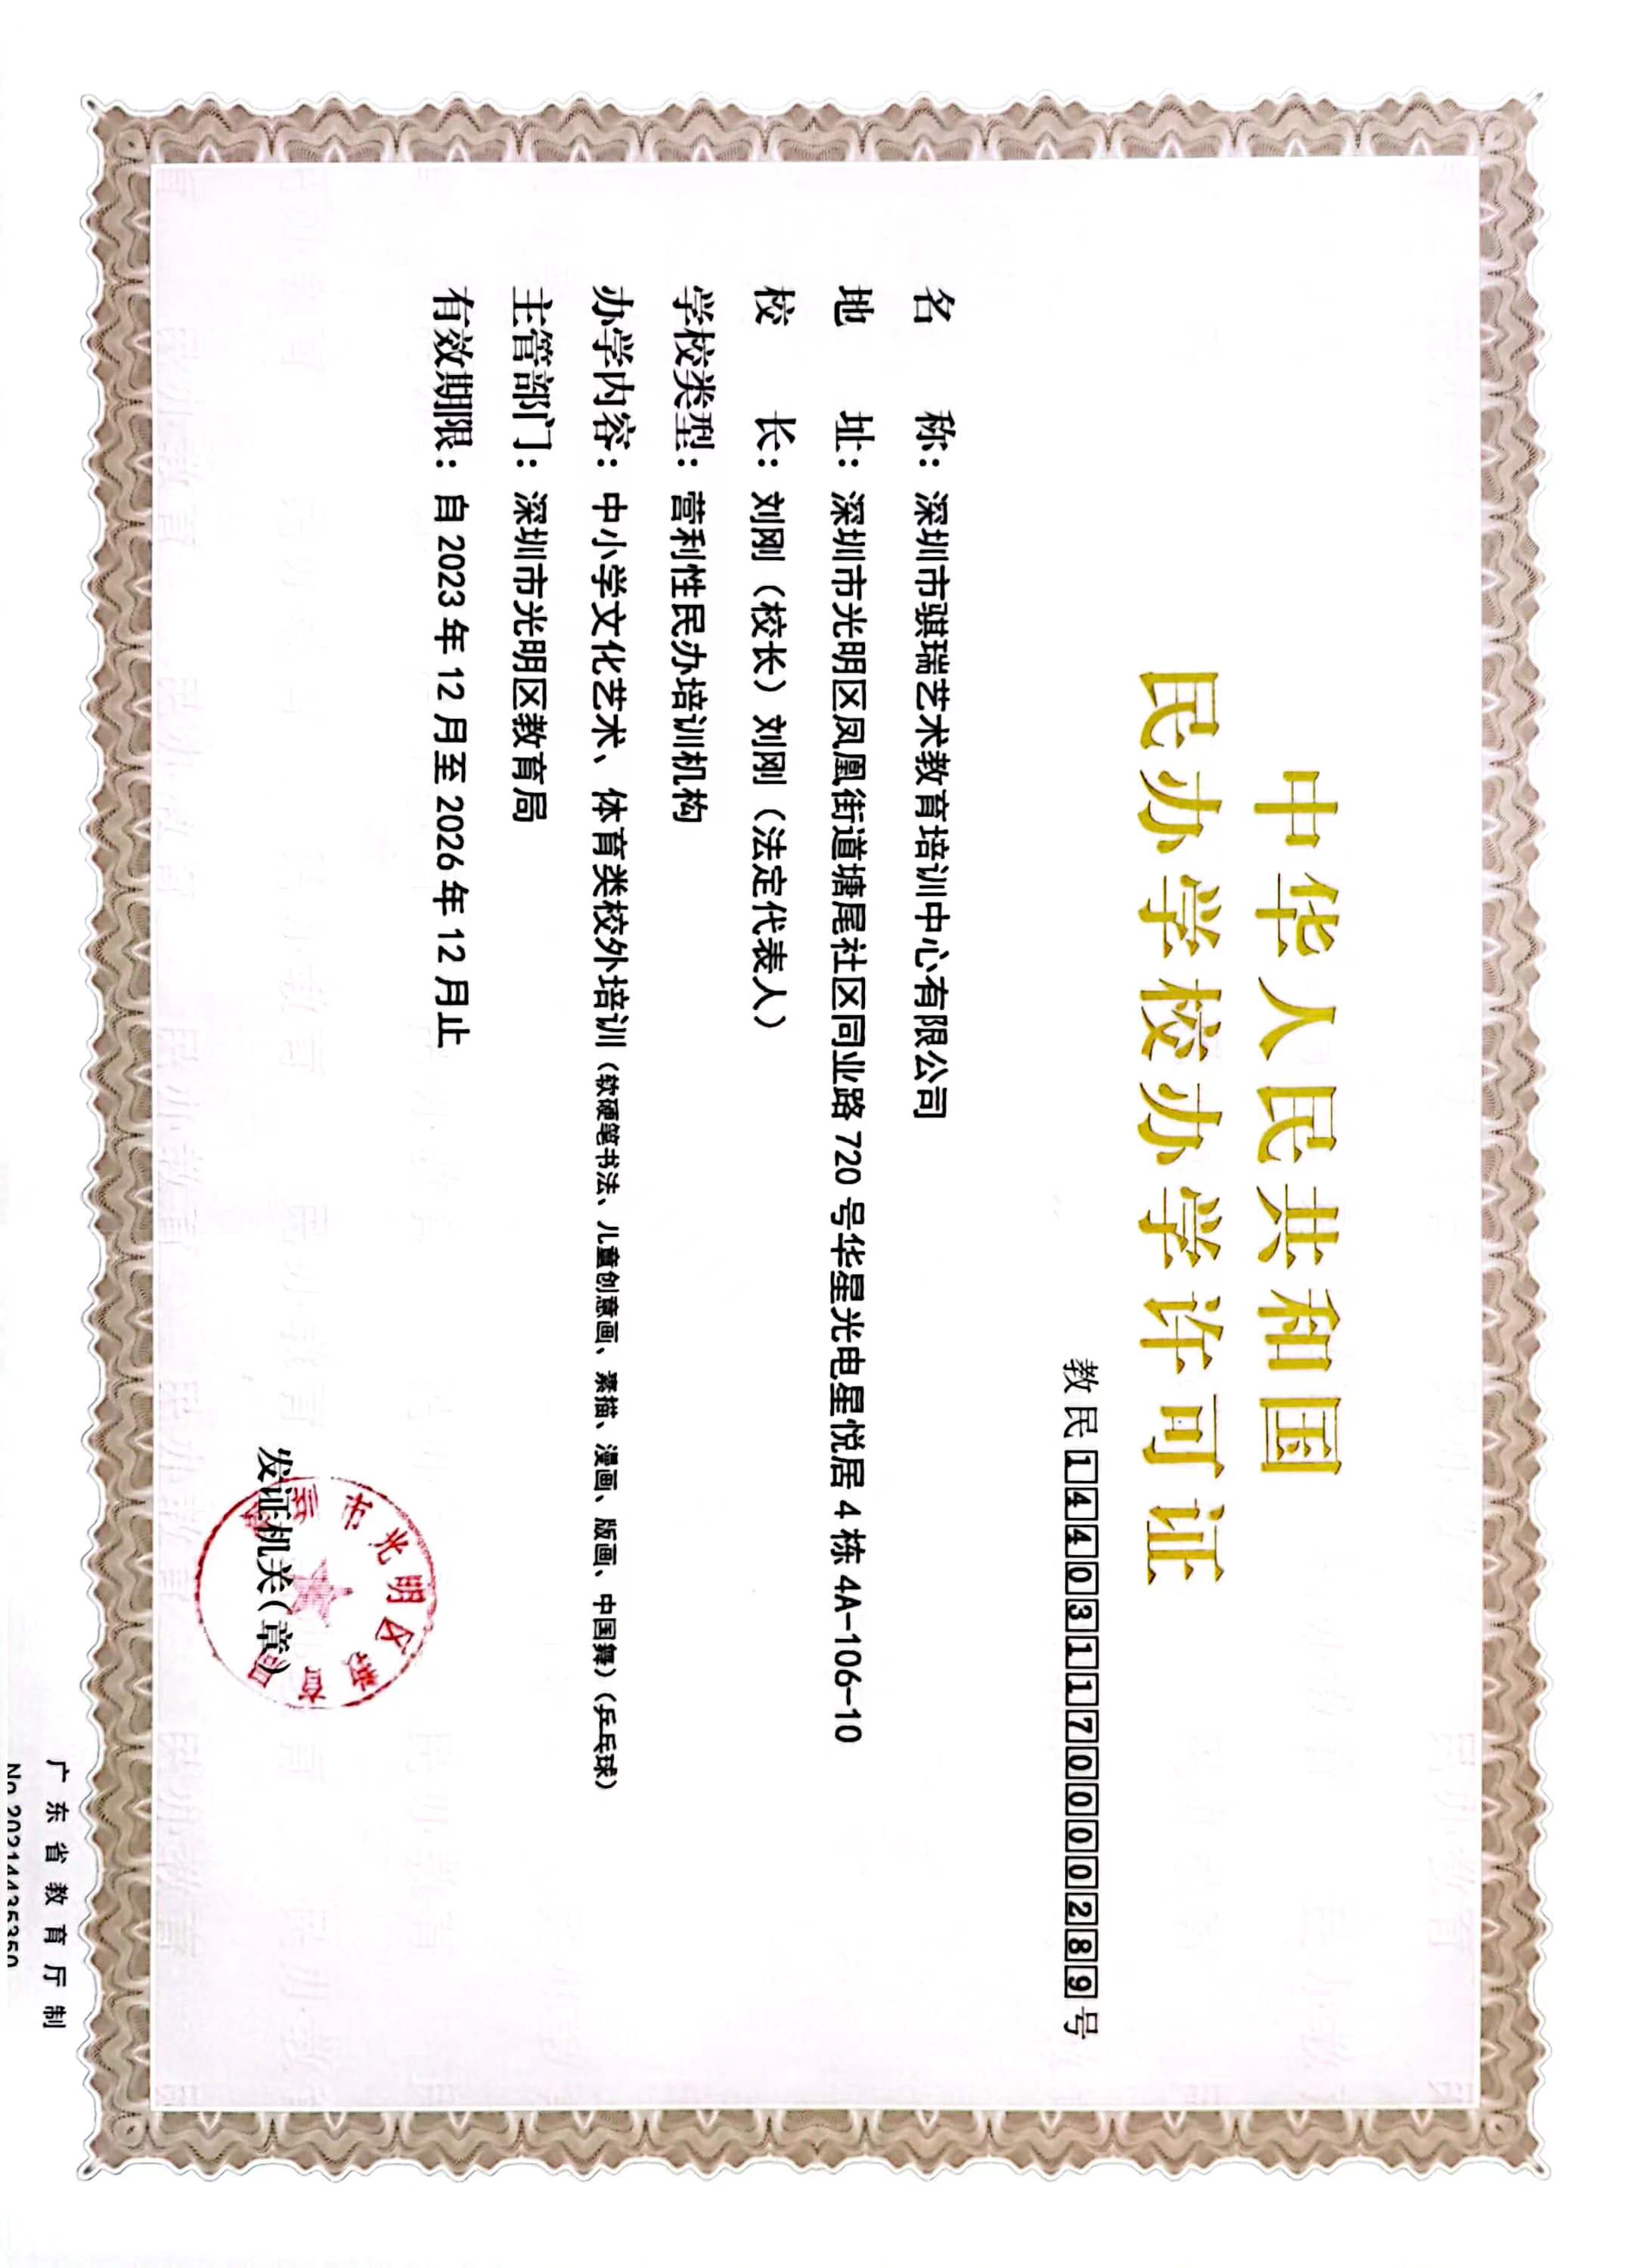 中华人民共和国
民办学校办学许可证
教民144031170000289号
名称：深圳市骐瑞艺术教育培训中心有限公司
地址：深圳市光明区凤凰街道塘尾社区同业路720号华星光电星悦居4栋4A-106-10
校长：刘刚（校长）刘刚（法定代表人）
学校类型：营利性民办培训机构
办学内容：中小学文化艺术、体育类校外培训（软硬笔书法、儿童创意画、素描、漫画、版画、中国舞）（乒乓球）
主管部门：深圳市光明区教育局
有效期限：自2023年12月至2026年12月止
发证机关（章）
市光明区教育局
广东省教育厅制